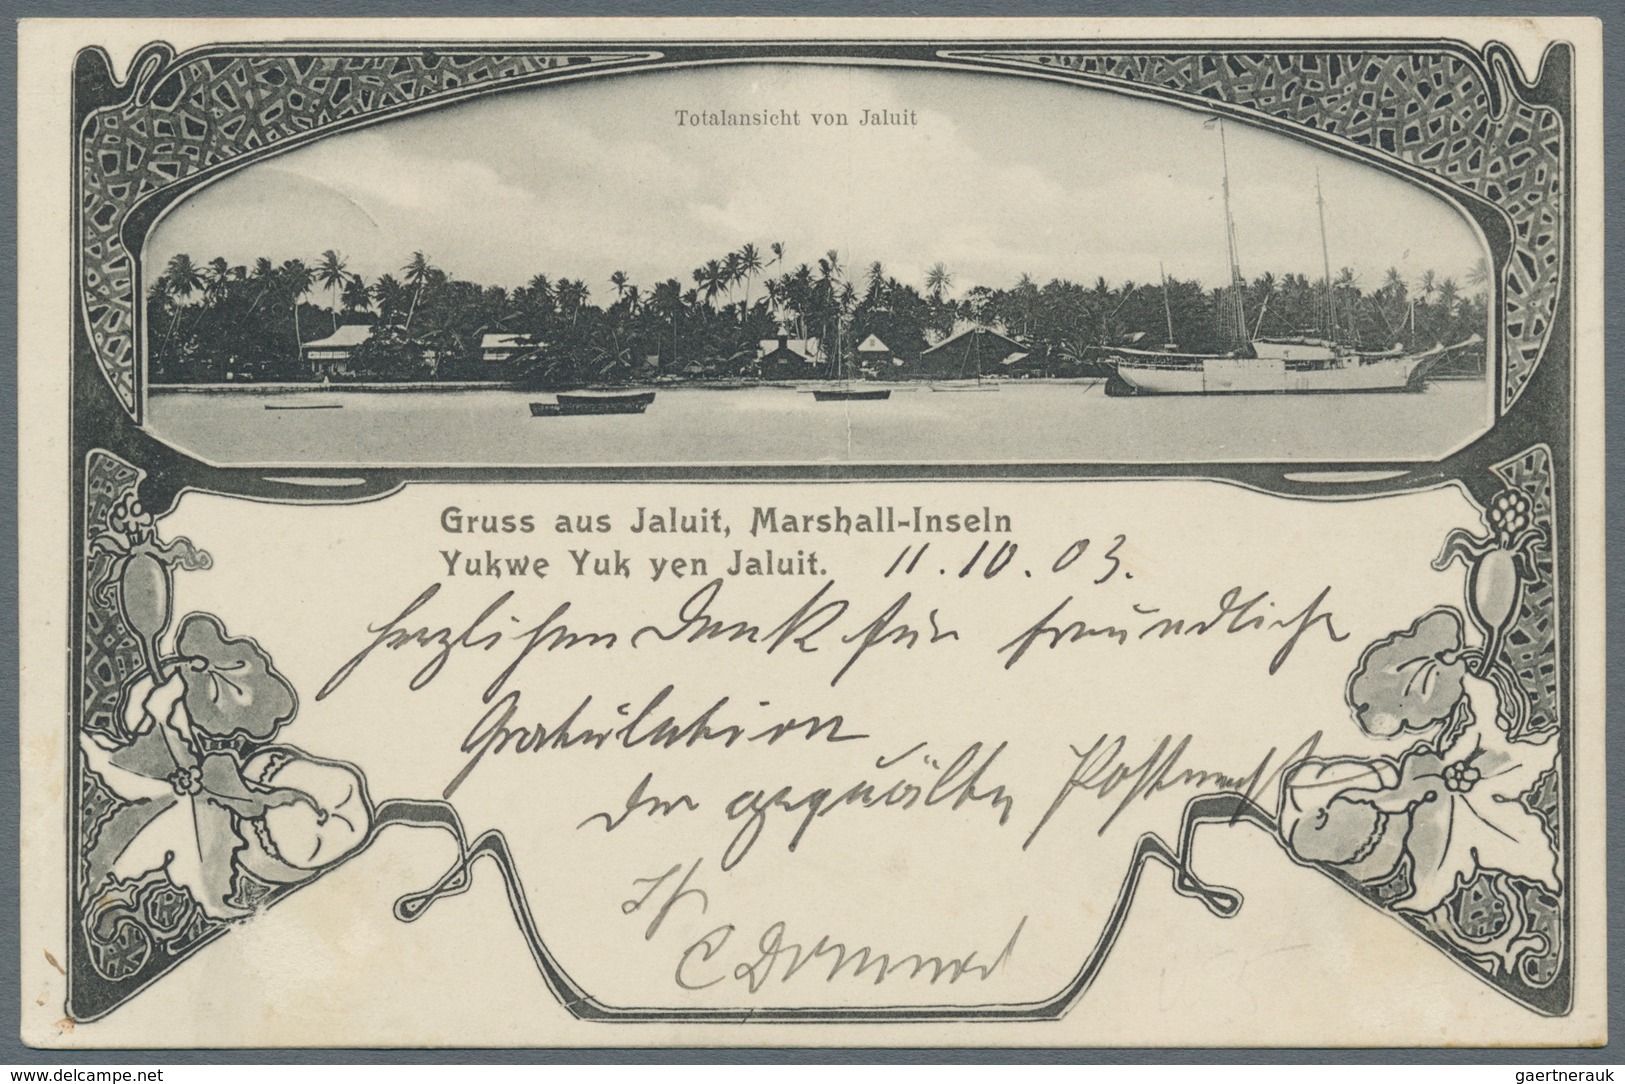 Totalansicht von Jaluit
Gruss aus Jaluit, Marshall-Inseln
Yukwe Yuk yen Jaluit. 11.10.03.
herzlichen Dank für freundliche
Gratulation
der gequälte
C
delcampe.net
gaertnerauk